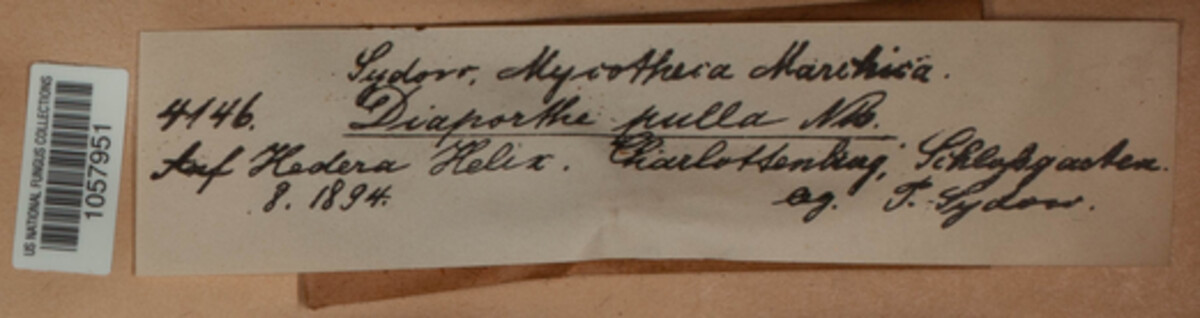 Sydow, Mycotheca Marchica.
4146. Diaporthe pulla Nke.
Auf Hedera Helix. Charlottenburg, Schloßgarten.
8. 1894. leg. P. Sydow.
US NATIONAL FUNGUS COLLECTIONS
1057951